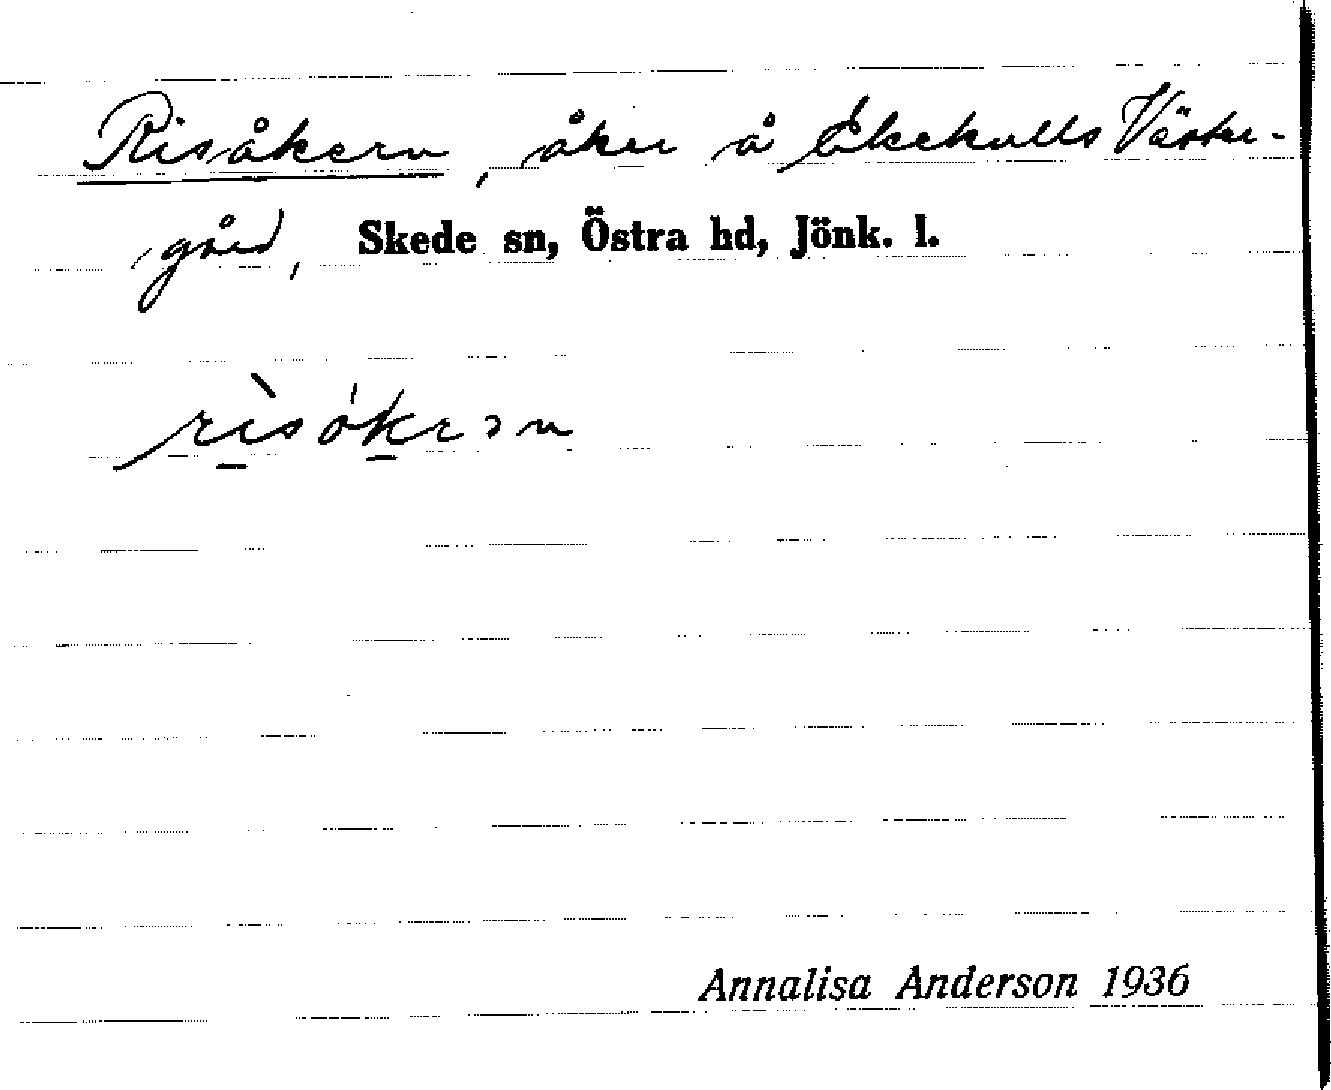 Risåkern, åker å Ekekulls Väster-
gård, Skede sn, Östra hd, Jönk. l.
Annalisa Anderson 1936